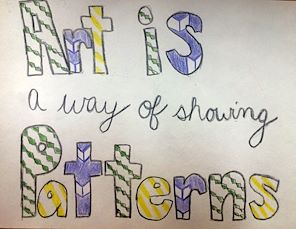 Art is
a way of showing
Patterns